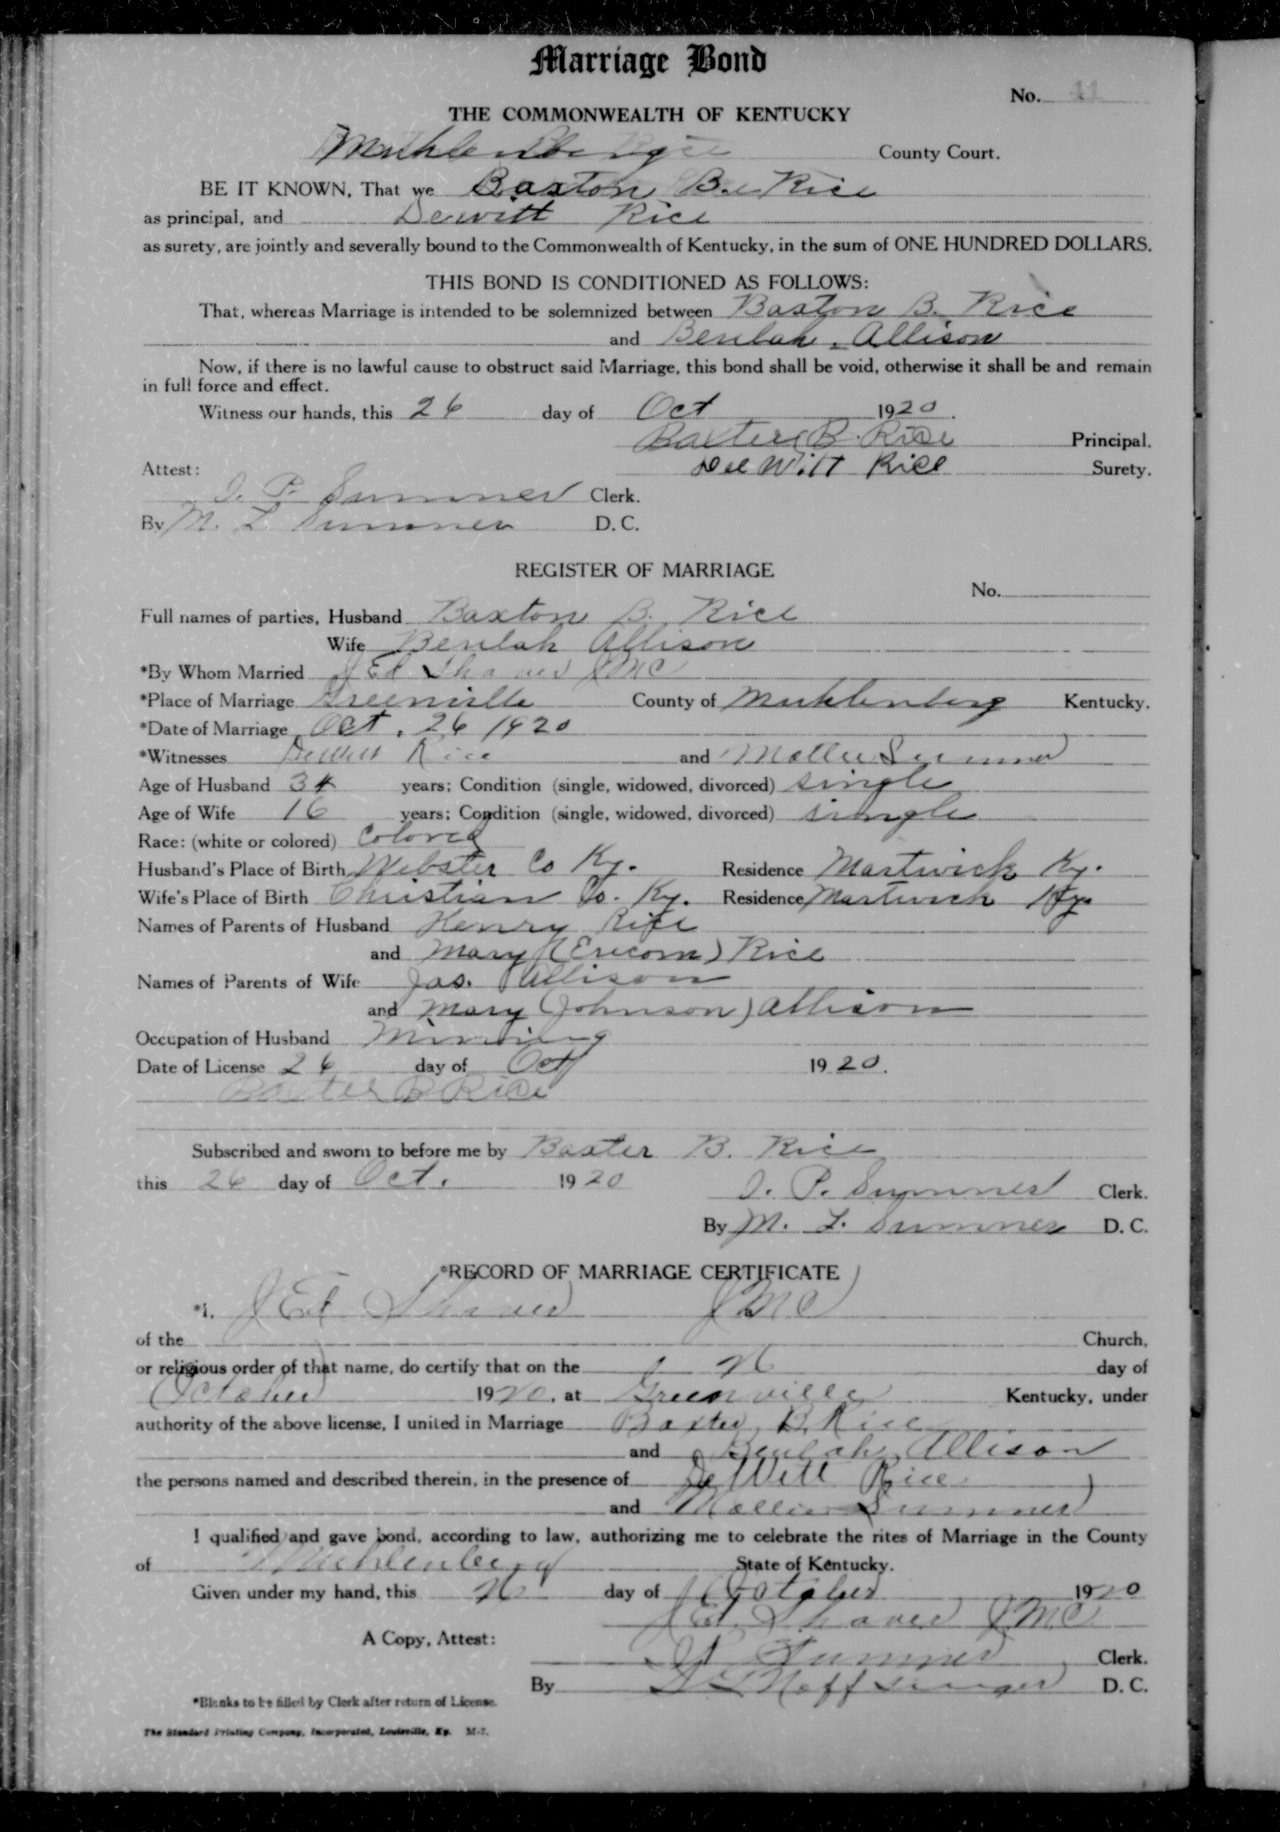 Marriage Bond
No. 41
THE COMMONWEALTH OF KENTUCKY
Muhlenberg County Court.
BE IT KNOWN, That we Baxton B. Rice
as principal, and Dewitt Rice
as surety, are jointly and severally bound to the Commonwealth of Kentucky, in the sum of ONE HUNDRED DOLLARS.
THIS BOND IS CONDITIONED AS FOLLOWS:
That, whereas Marriage is intended to be solemnized between Baxton B. Rice
and Beulah Allison
Now, if there is no lawful cause to obstruct said Marriage, this bond shall be void, otherwise it shall be and remain
in full force and effect.
Witness our hands, this 26 day of Oct 1920.
Baxter B. Rice Principal.
Attest: Dee Witt Rice Surety.
J. P. Summer Clerk.
By M. L. Summer D. C.
REGISTER OF MARRIAGE
No.
Full names of parties, Husband Baxton B. Rice
Wife Beulah Allison
*By Whom Married J Ed Shaver JMC
*Place of Marriage Greenville County of Muhlenberg Kentucky.
*Date of Marriage Oct. 26 1920
*Witnesses DeWitt Rice and Mollie Summer
Age of Husband 34 years; Condition (single, widowed, divorced) single
Age of Wife 16 years; Condition (single, widowed, divorced) single
Race: (white or colored) Colored
Husband's Place of Birth Webster Co Ky. Residence Martwick Ky.
Wife's Place of Birth Christian Co. Ky. Residence Martwick Ky.
Names of Parents of Husband Henry Rice
and Mary ( ) Rice
Names of Parents of Wife Jas. Allison
and Mary (Johnson) Allison
Occupation of Husband Mining
Date of License 26 day of Oct 1920.
Baxter B Rice
Subscribed and sworn to before me by Baxter B. Rice
this 26 day of Oct. 1920
J. P. Summer Clerk.
By M. L. Summer D. C.
*RECORD OF MARRIAGE CERTIFICATE
*I, J Ed Shaver JMC
of the Church,
or religious order of that name, do certify that on the 26 day of
October 1920, at Greenville Kentucky, under
authority of the above license, I united in Marriage Baxter B. Rice
and Beulah Allison
the persons named and described therein, in the presence of DeWitt Rice
and Mollie Summer
I qualified and gave bond, according to law, authorizing me to celebrate the rites of Marriage in the County
of Muhlenberg State of Kentucky.
Given under my hand, this 26 day of October 1920
J Ed. Shaver JMC
A Copy, Attest:
J P Summer Clerk.
By Noffsinger D. C.
*Blanks to be filled by Clerk after return of License.
The Standard Printing Company, Incorporated, Louisville, Ky. M-7.